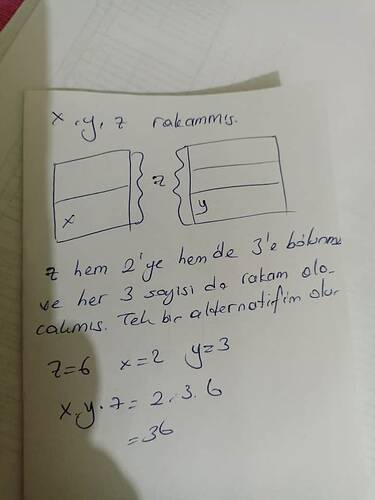 x, y, z rakammış.
z
x
y
z hem 2'ye hem de 3'e bölünme
ve her 3 sayısı da rakam ola-
cakmış. Tek bir alternatifim olur
z=6 x=2 y=3
x.y.z = 2.3.6
=36